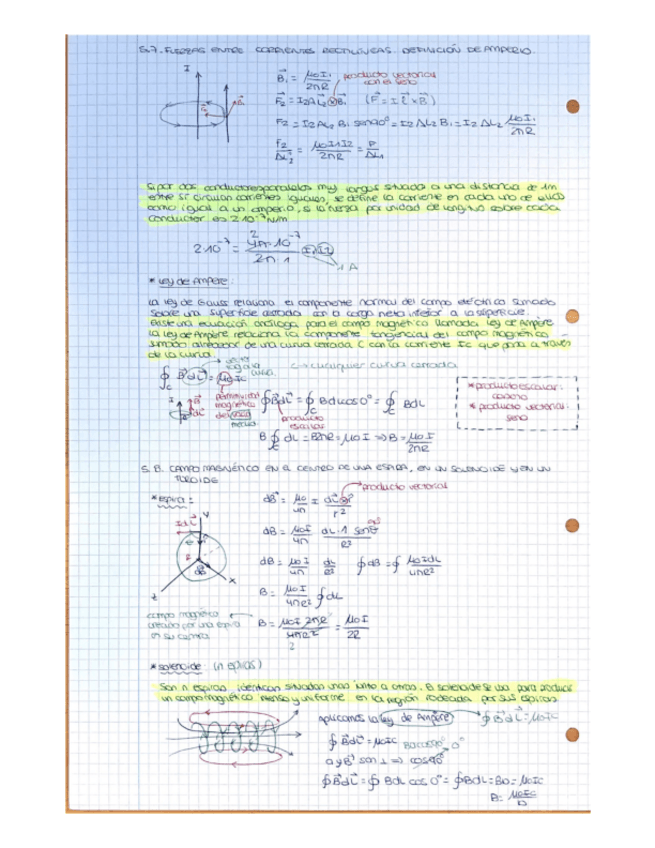 5.7. FUERZAS ENTRE CORRIENTES RECTILÍNEAS. DEFINICIÓN DE AMPERIO.
I
B⃗₁ = μ₀I₁/2πR
producto vectorial con el seno
F⃗₂ = I₂ΔL⃗₂⊗B⃗₁ (F⃗ = I L⃗ × B⃗)
F₂ = I₂ΔL₂ B₁ sen90° = I₂ ΔL₂ B₁ = I₂ ΔL₂ μ₀I₁/2πR
F₂/ΔL₂ = μ₀I₁I₂/2πR = F/ΔL₁
Si por dos conductores paralelos muy largos situados a una distancia de 1m
entre sí circulan corrientes iguales, se define la corriente en cada uno de ellos
como igual a un amperio, si la fuerza por unidad de longitud sobre cada
conductor es 2·10⁻⁷ N/m
2·10⁻⁷ = 4π·10⁻⁷/2π·1 I₁I₂
2
1 A
* Ley de Ampere:
La ley de Gauss relaciona el componente normal del campo eléctrico sumado
sobre una superficie cerrada con la carga neta interior a la superficie.
Existe una ecuación análoga para el campo magnético llamada ley de Ampère
La ley de Ampère relaciona la componente tangencial del campo magnético
sumado alrededor de una curva cerrada C con la corriente Ic que pasa a través
de la curva.
∮c B⃗dL⃗ = μ₀Ic
cualquier curva cerrada
permitividad magnética del vacío
medio
∮B⃗dL⃗ = ∮c BdLcos0° = ∮c BdL
producto escalar
* producto escalar: coseno
* producto vectorial: seno
B∮c dL = B2πR = μ₀I ⇒ B = μ₀I/2πR
5.8. CAMPO MAGNÉTICO EN EL CENTRO DE UNA ESPIRA, EN UN SOLENOIDE Y EN UN
TOROIDE
* espira:
dB⃗ = μ₀/4π I dL⃗⊗r̂/r²
producto vectorial
Y
X
Z
dB = μ₀I/4π dL·1 senθ/R²
90°
dB = μ₀I/4π dL/R² ∮dB = ∮ μ₀IdL/4πR²
B = μ₀I/4πR² ∮dL
campo magnético
creado por una espira
en su centro
B = μ₀I 2πR/4πR² = μ₀I/2R
2
* solenoide: (n espiras)
Son n espiras idénticas situadas unas junto a otras. El solenoide se usa para producir
un campo magnético intenso y uniforme en la región rodeada por sus espiras
aplicamos la ley de Ampère
∮B⃗dL⃗ = μ₀Ic
∮B⃗dL⃗ = μ₀Ic
a y B⃗ son ⊥ ⇒ cos90°
∮B⃗dL⃗ = ∮BdL cos 0° = ∮BdL = Bb = μ₀Ic
B = μ₀Ic/b